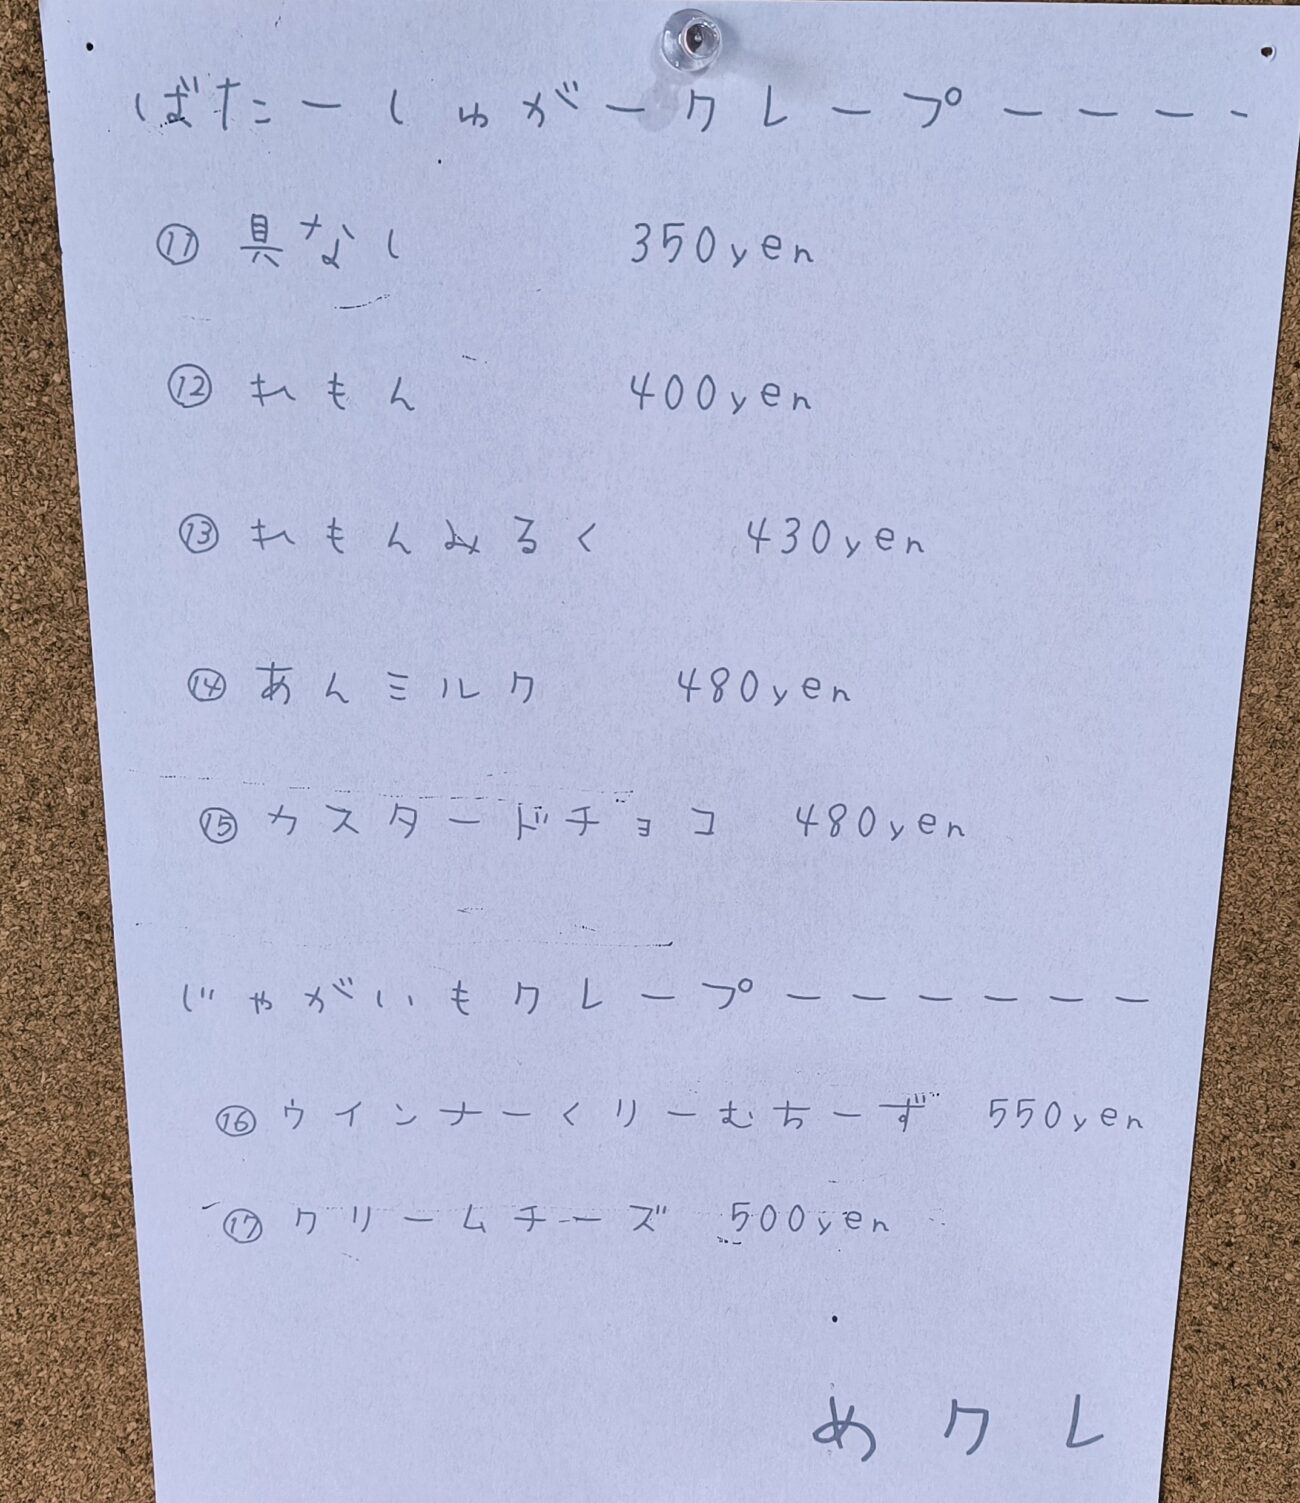 ばたーしゅがークレープーーーー
⑪ 具なし 350yen
⑫ れもん 400yen
⑬ れもんみるく 430yen
⑭ あんミルク 480yen
⑮ カスタードチョコ 480yen
じゃがいもクレープーーーーーー
⑯ ウインナーくりーむちーず 550yen
⑰ クリームチーズ 500yen
めクレ